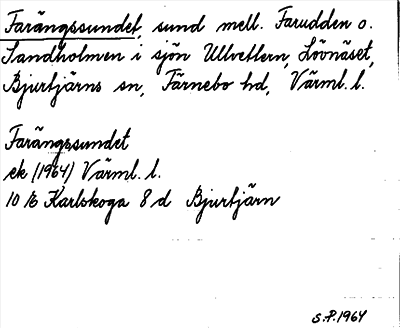 Farängssundet, sund mell. Farudden o.
Sandholmen i sjön Ullvettern, Lövnäset,
Bjurtjärns sn, Färnebo hd, Värml. l.
Farängssundet
ek (1964) Värml. l.
10 E Karlskoga 8 d Bjurtjärn
S.P. 1964